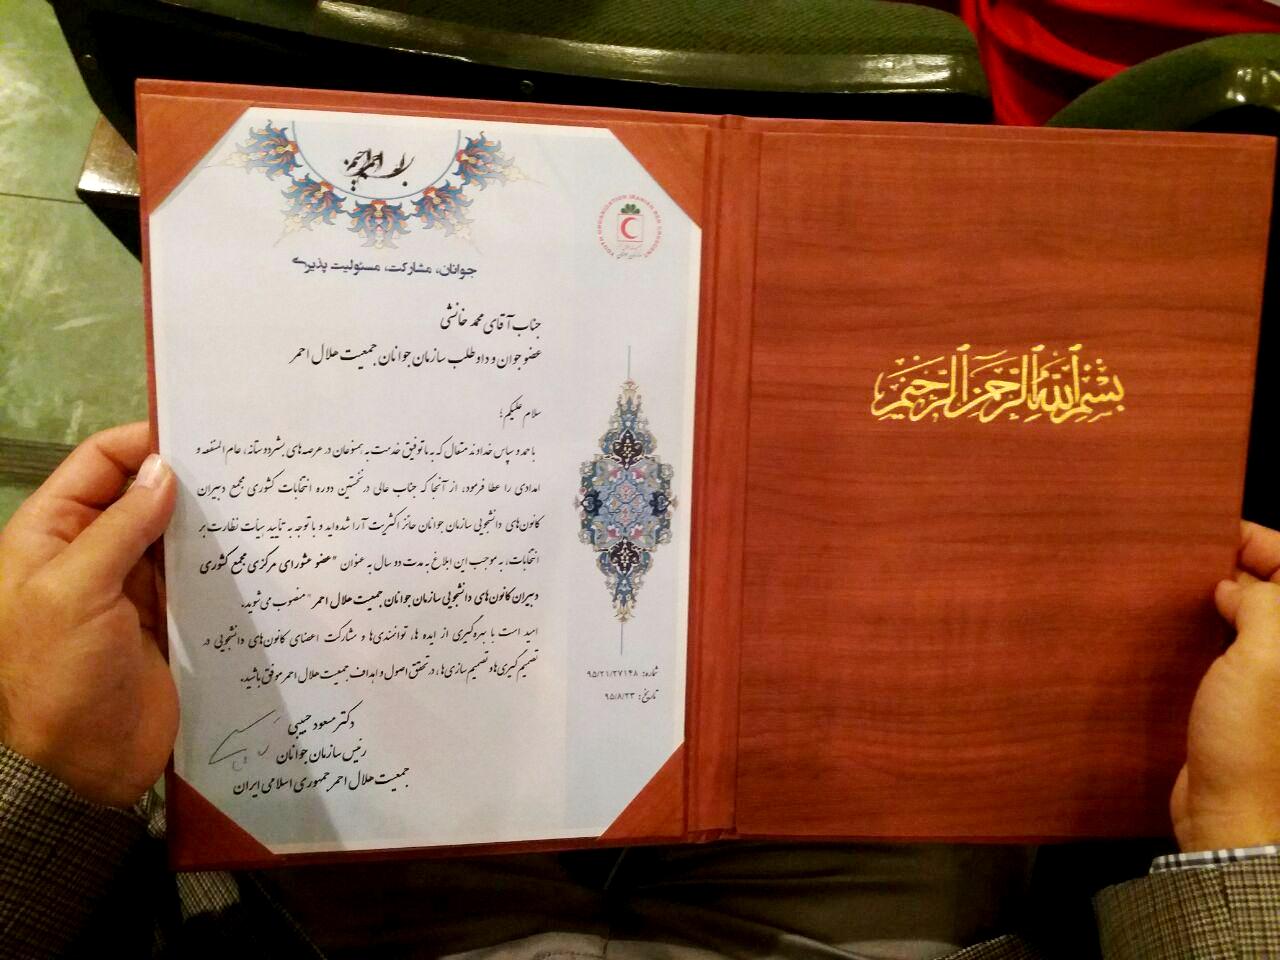 بسم الله الرحمن الرحیم
جوانان، مشارکت، مسئولیت پذیری
YOUTH ORGANIZATION IRANIAN RED CRESCENT
جناب آقای محمد خانشی
عضو جوان و داوطلب سازمان جوانان جمعیت هلال احمر
سلام علیکم؛
با حمد و سپاس خداوند متعال که به ما توفیق خدمت به همنوعان در عرصه‌های بشردوستانه، عام المنفعه و
امدادی را عطا فرمود، از آنجا که جناب عالی در نخستین دوره انتخابات کشوری مجمع دبیران
کانون‌های دانشجویی سازمان جوانان حائز اکثریت آرا شده‌اید و با توجه به تأیید هیأت نظارت بر
انتخابات، به موجب این ابلاغ به مدت دو سال به عنوان "عضو شورای مرکزی مجمع کشوری
دبیران کانون‌های دانشجویی سازمان جوانان جمعیت هلال احمر" منصوب می‌شوید.
امید است با بهره‌گیری از ایده ها، توانمندی‌ها و مشارکت اعضای کانون‌های دانشجویی در
تصمیم گیری‌ها و تصمیم سازی‌ها، در تحقق اصول و اهداف جمعیت هلال احمر موفق باشید.
شماره: ۹۵/۲۱/۲۷۱۴۸
تاریخ: ۹۵/۸/۲۳
دکتر مسعود حبیبی
رئیس سازمان جوانان
جمعیت هلال احمر جمهوری اسلامی ایران
بسم الله الرحمن الرحیم